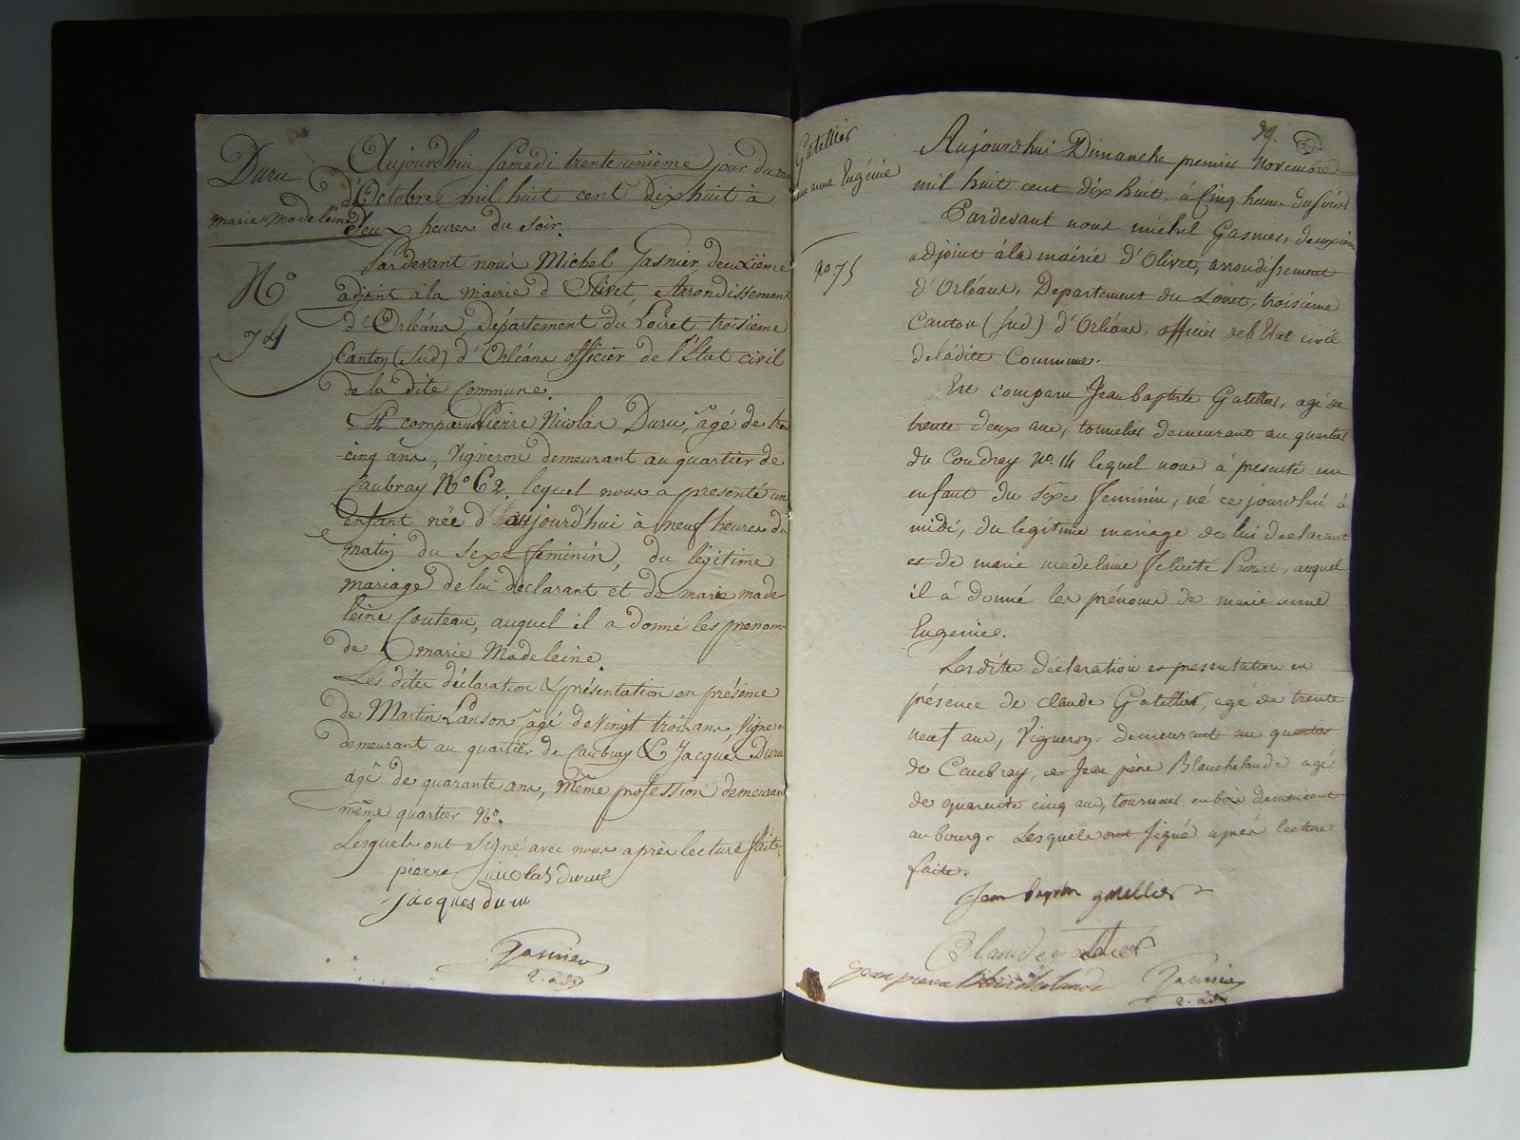 Duru
marie madeleine
N°
74
Aujourd'hui samedi trente unième jour du mois
d'Octobre mil huit cent dix huit à
deux heures du soir.
Pardevant nous Michel Gasnier deuxième
adjoint à la mairie d'Olivet, Arrondissement
d'Orléans, Département du Loiret, troisième
Canton (Sud) d'Orléans officier de l'État civil
de la dite Commune.
Est comparu Pierre Nicolas Duru, âgé de
cinq ans, Vigneron demeurant au quartier de
Caubray N° 62. lequel nous a présenté un
enfant née d'aujourd'hui à neuf heures du
matin du sexe feminin, du légitime
mariage de lui declarant et de marie made
leine Couteau, auquel il a donné les prenoms
de marie Madeleine.
Les dites déclaration & présentation en présence
de Martin Lanson âgé de vingt trois ans, Vigneron
demeurant au quartier de Caubray & Jacques Duru
âgé de quarante ans, même profession demeurant
même quartier
Lesquels ont signé avec nous après lecture faite
pierre nicolas duru
jacques duru
Gasnier
2. adj
39.
Gatellier
marie anne Eugénie
No 75
Aujourdhui Dimanche premier Novembre
mil huit cent dix huit, à Cinq heures du soir
Pardevant nous michel Gasnier, deuxième
adjoint à la mairie d'Olivet, arrondissement
d'Orléans, Departement du Loiret, troisième
Canton (sud) d'Orléans, officier de l'Etat civil
de la dite Commune.
Est comparu Jean baptiste Gatellier, agé de
trente deux ans, tonnelier demeurant au quartier
du Coudray No. 14 lequel nous à presenté un
enfant du sexe feminin, né ce jourdhui à
midi, du legitime mariage de lui declarant
et de marie madelaine Felicité, auquel
il à donné les prénoms de marie anne
Eugenie.
Les dites déclaration et presentation en
présence de claude Gatellier, agé de trente
neuf ans, Vigneron demeurant au quartier
de Caubray, et Jean pierre Blanchelande agé
de quarante cinq ans, tourneur en bois demeurant
au bourg. Lesquels ont signé après lecture
faite.
jean baptiste gatellier
Claude
jean pierre Blanchelande
Gasnier
2. adj